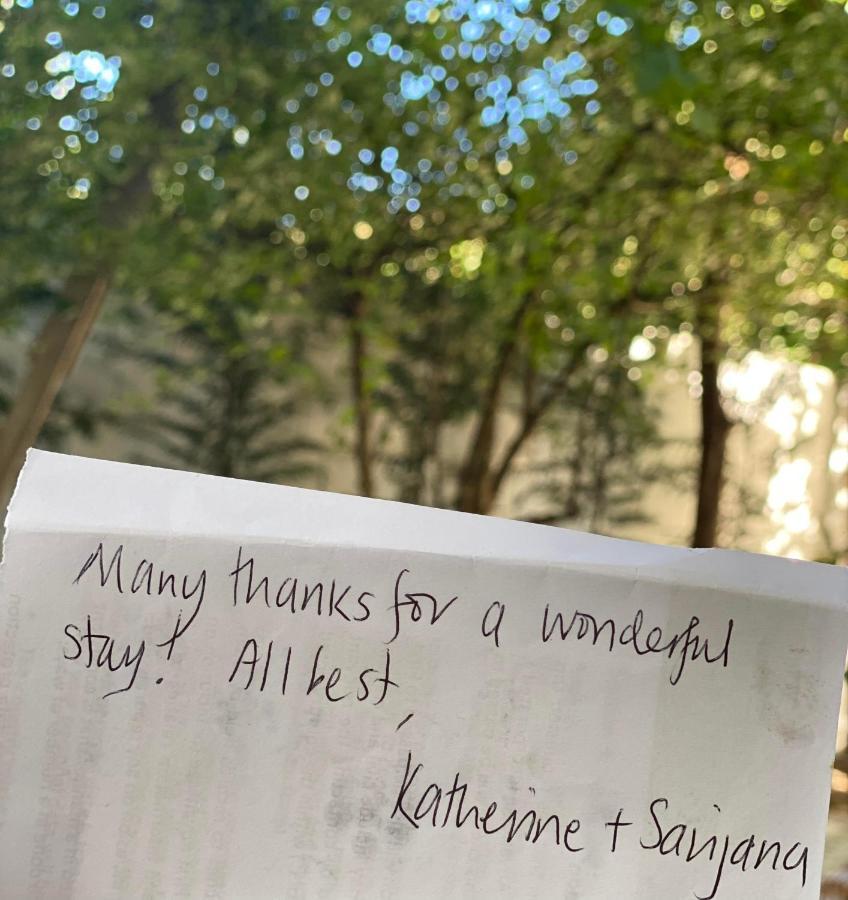 Many thanks for a wonderful
stay! All best,
Katherine + Sanjana